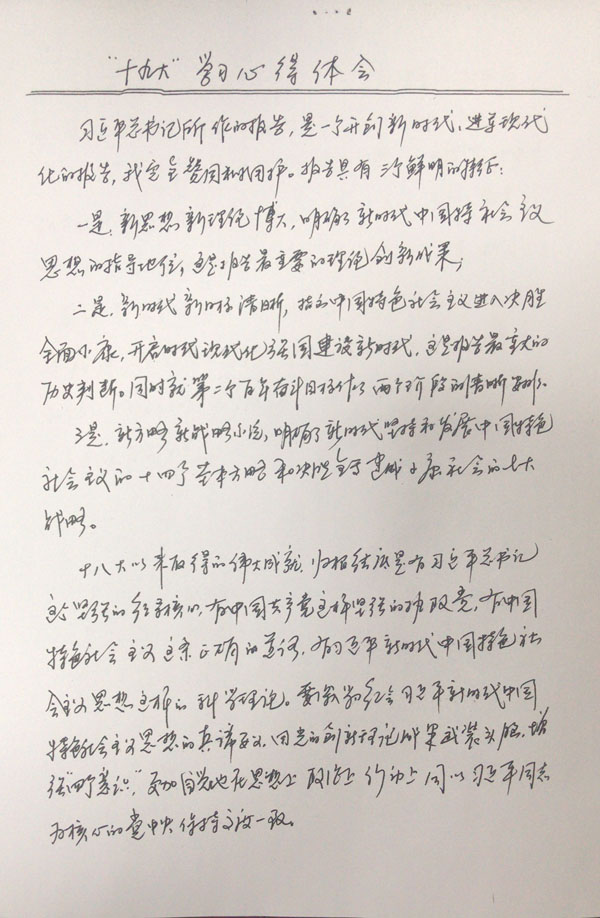 “十九大”学习心得体会
习近平总书记所作的报告，是一个开创新时代、进军现代
化的报告，我完全赞同和拥护。报告具有三个鲜明的特征：
一是，新思想新理论博大，明确了新时代中国特色社会主义
思想的指导地位，这是报告最重要的理论创新成果；
二是，新时代新目标清晰，指出中国特色社会主义进入决胜
全面小康，开启时代现代化强国建设新时代，这是报告最重大的
历史判断。同时就第二个百年奋斗目标作了两个阶段的清晰安排。
三是，新方略新战略，明确了新时代坚持和发展中国特色
社会主义的十四个基本方略和决胜全面建成小康社会的七大
战略。
十八大以来取得的伟大成就，归根结底是有习近平总书记
这个坚强的领导核心，有中国共产党这样坚强的执政党，有中国
特色社会主义这条正确的道路，有习近平新时代中国特色社
会主义思想这样的科学理论。要深刻领会习近平新时代中国
特色社会主义思想的真谛要义，用党的创新理论成果武装头脑，增
强“四个意识”，更加自觉地在思想上政治上行动上同以习近平同志
为核心的党中央保持高度一致。